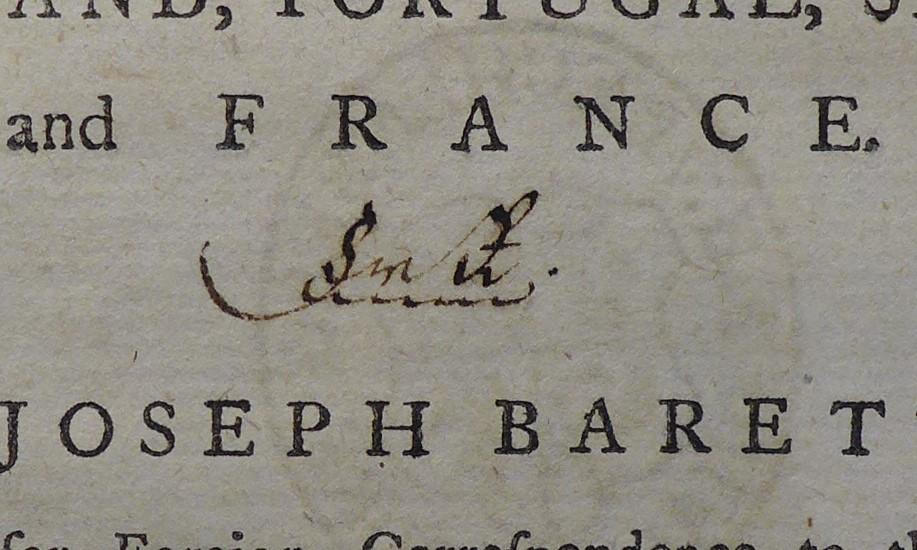 AND, PORTUGAL, S
and FRANCE.
Smith.
JOSEPH BARET
for Foreign Correſpondence to th